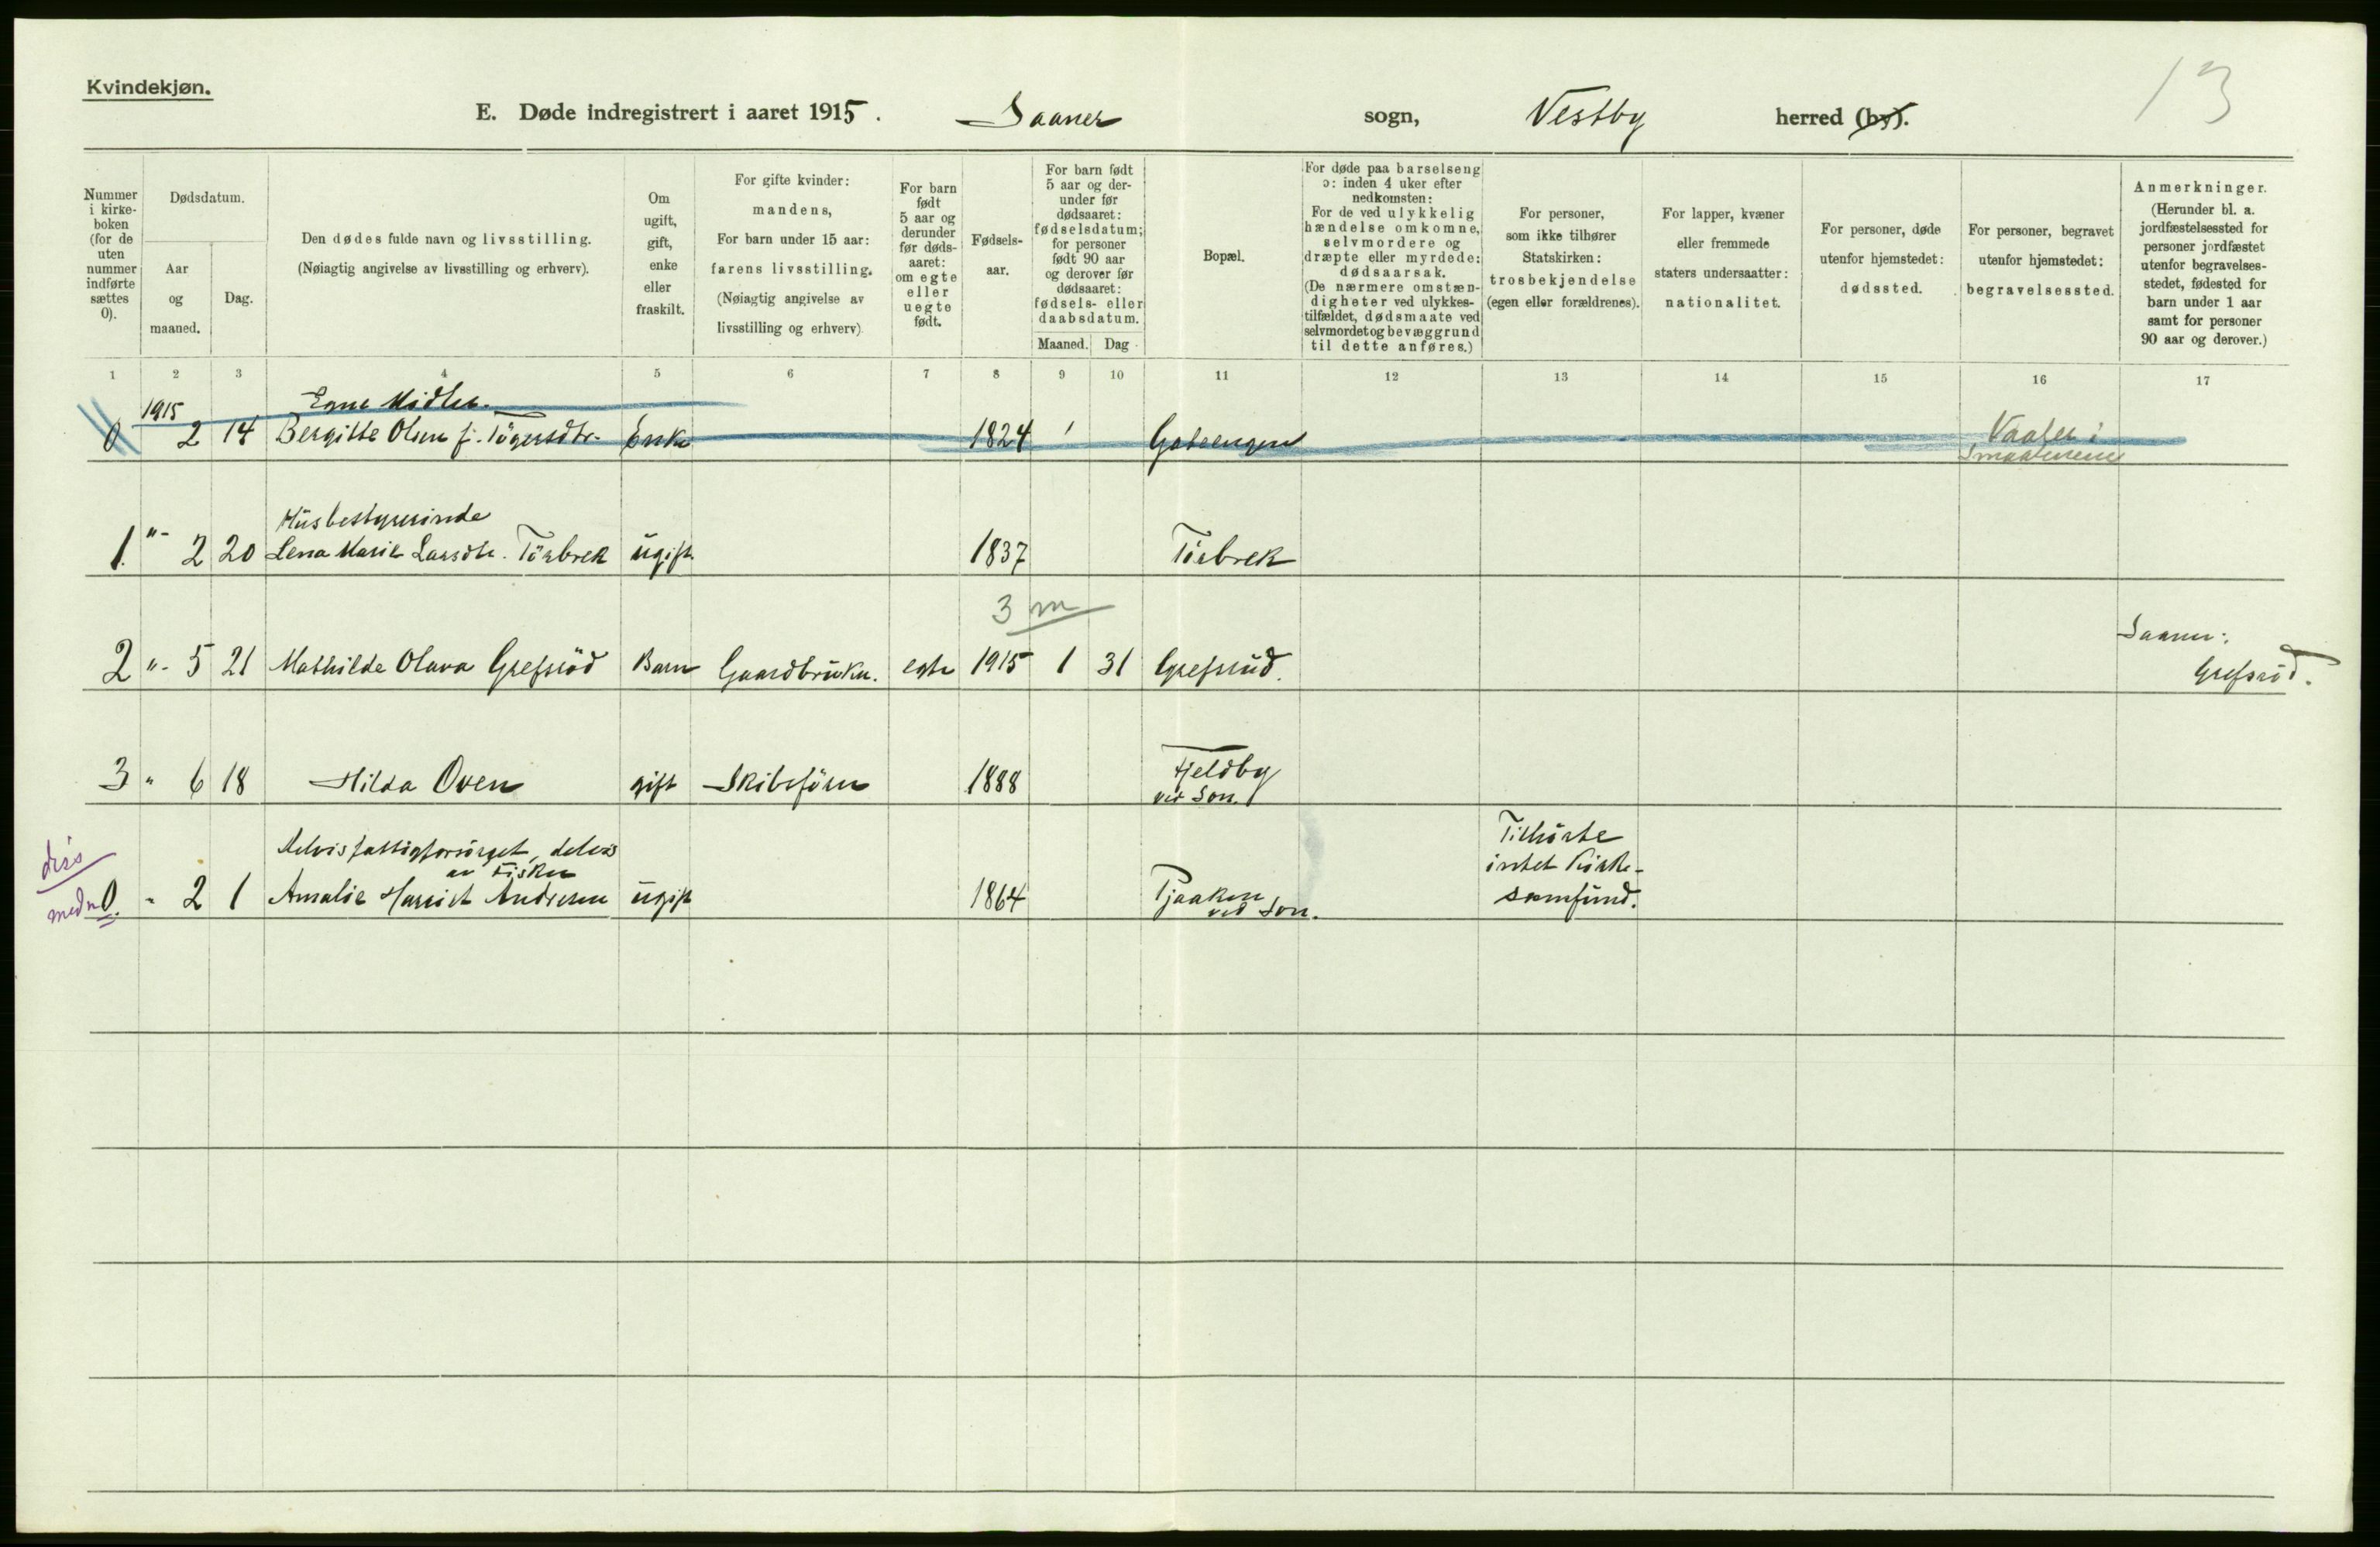 Kvindekjøn.
13
E. Døde indregistrert i aaret 1915. Saaner sogn, Vestby herred (by).
Nummer i kirke-boken (for de uten nummer indførte sættes 0).
Dødsdatum.
Aar og maaned.
Dag.
Den dødes fulde navn og livsstilling.
(Nøiagtig angivelse av livsstilling og erhverv).
Om ugift, gift, enke eller fraskilt.
For gifte kvinder: mandens,
For barn under 15 aar: farens livsstilling.
(Nøiagtig angivelse av livsstilling og erhverv)
For barn født 5 aar og derunder før døds-aaret: om egte eller uegte født.
Fødsels-aar.
For barn født 5 aar og der-under før dødsaaret: fødselsdatum; for personer født 90 aar og derover før dødsaaret: fødsels- eller daabsdatum.
Maaned. Dag.
Bopæl.
For døde paa barselseng ɔ: inden 4 uker efter nedkomsten:
For de ved ulykkelig hændelse omkomne, selvmordere og dræpte eller myrdede: dødsaarsak.
(De nærmere omstæn-digheter ved ulykkes-tilfældet, dødsmaate ved selvmordet og bevæggrund til dette anføres.)
For personer, som ikke tilhører Statskirken: trosbekjendelse (egen eller forældrenes).
For lapper, kvæner eller fremmede staters undersaatter: nationalitet.
For personer, døde utenfor hjemstedet: dødssted.
For personer, begravet utenfor hjemstedet: begravelsessted.
Anmerkninger.
(Herunder bl. a. jordfæstelsessted for personer jordfæstet utenfor begravelses-stedet, fødested for barn under 1 aar samt for personer 90 aar og derover.)
1 2 3 4 5 6 7 8 9 10 11 12 13 14 15 16 17
1915 Egne Midler.
0 2 14 Bergitte Olsen f. Tögersdtr. Enke 1824 Gateengen Vaaler i
Smaalenene
Husbestyrerinde
1. "- 2 20 Lena Marie Larsdtr. Törbrek ugift 1837 Törbrek
3 m
Saaner:
2 "- 5 21 Mathilde Olava Grefsröd Barn Gaardbruker. egte 1915 1 31 Grefsrud. Grefsröd.
Fjeldby
3 " 6 18 Hilda Oven gift Skibsförer 1888 ved Son.
diss
Delvis fattigforsörget, delvis
av Fisker
Tilhörte
intet Kirke-
med n 0. " 2 1 Amalie Harriet Andresen ugift 1864 Tjaaken samfund.
ved Son.